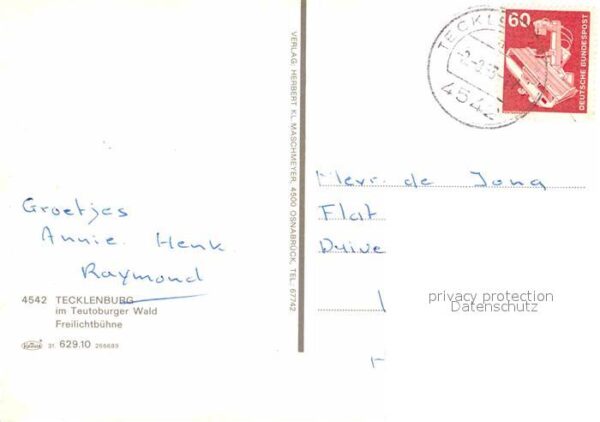 Groetjes
Annie. Henk.
Raymond
4542 TECKLENBURG
im Teutoburger Wald
Freilichtbühne
Krüger 31 629.10
VERLAG: HERBERT KL. MASCHMEYER, 4500 OSNABRÜCK, TEL. 67742
60
DEUTSCHE BUNDESPOST
TECKL
4542
Mevr. de Jong
Flat
privacy protection
Datenschutz